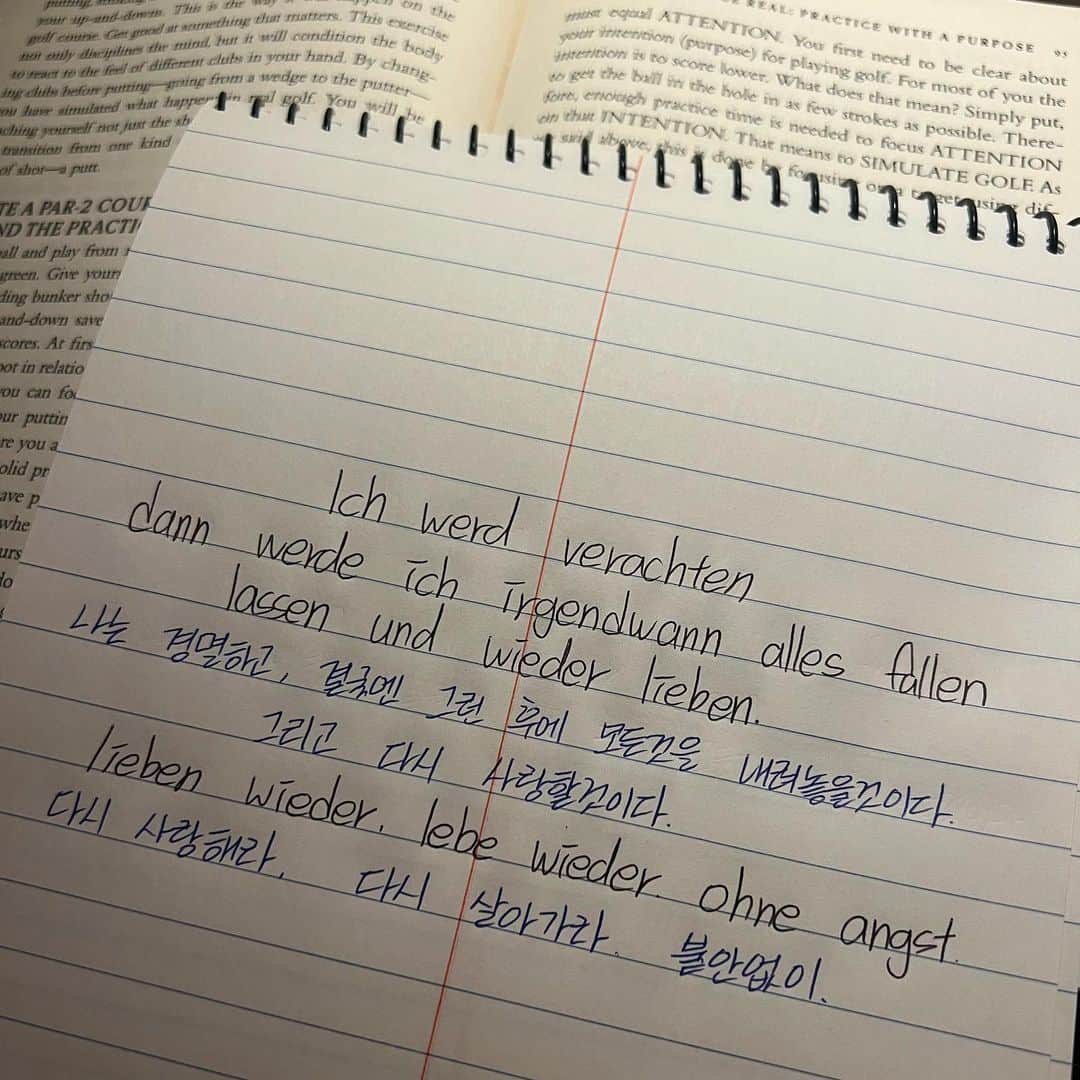 your up-and-down. This is the way
golf course. Get good at something that matters. This exercise
not only disciplines the mind, but it will condition the body
to react to the feel of different clubs in your hand. By chang-
ing clubs before putting—going from a wedge to the putter—
you have simulated what happens in real golf. You will be
ching yourself not just the
transition from one kind
of shot—a putt.
TE A PAR-2 COU
ND THE PRACTI
all and play from
green. Give your
ding bunker sho
and-down save
scores. At firs
oot in relatio
you can fo
ur puttin
re you a
olid pr
ave p
whe
urs
do
REAL: PRACTICE WITH A PURPOSE 95
must equal ATTENTION. You first need to be clear about
your intention (purpose) for playing golf. For most of you the
intention is to score lower. What does that mean? Simply put,
to get the ball in the hole in as few strokes as possible. There-
fore, enough practice time is needed to focus ATTENTION
on that INTENTION. That means to SIMULATE GOLF. As
said above, this is done by focusing on a target, using dif-
Ich werd verachten
dann werde ich irgendwann alles fallen
lassen und wieder lieben.
나는 경멸하고, 결국엔 그런 후에 모든것을 내려놓을것이다.
그리고 다시 사랑할것이다.
lieben wieder. lebe wieder. ohne angst.
다시 사랑해라. 다시 살아가라. 불안없이.